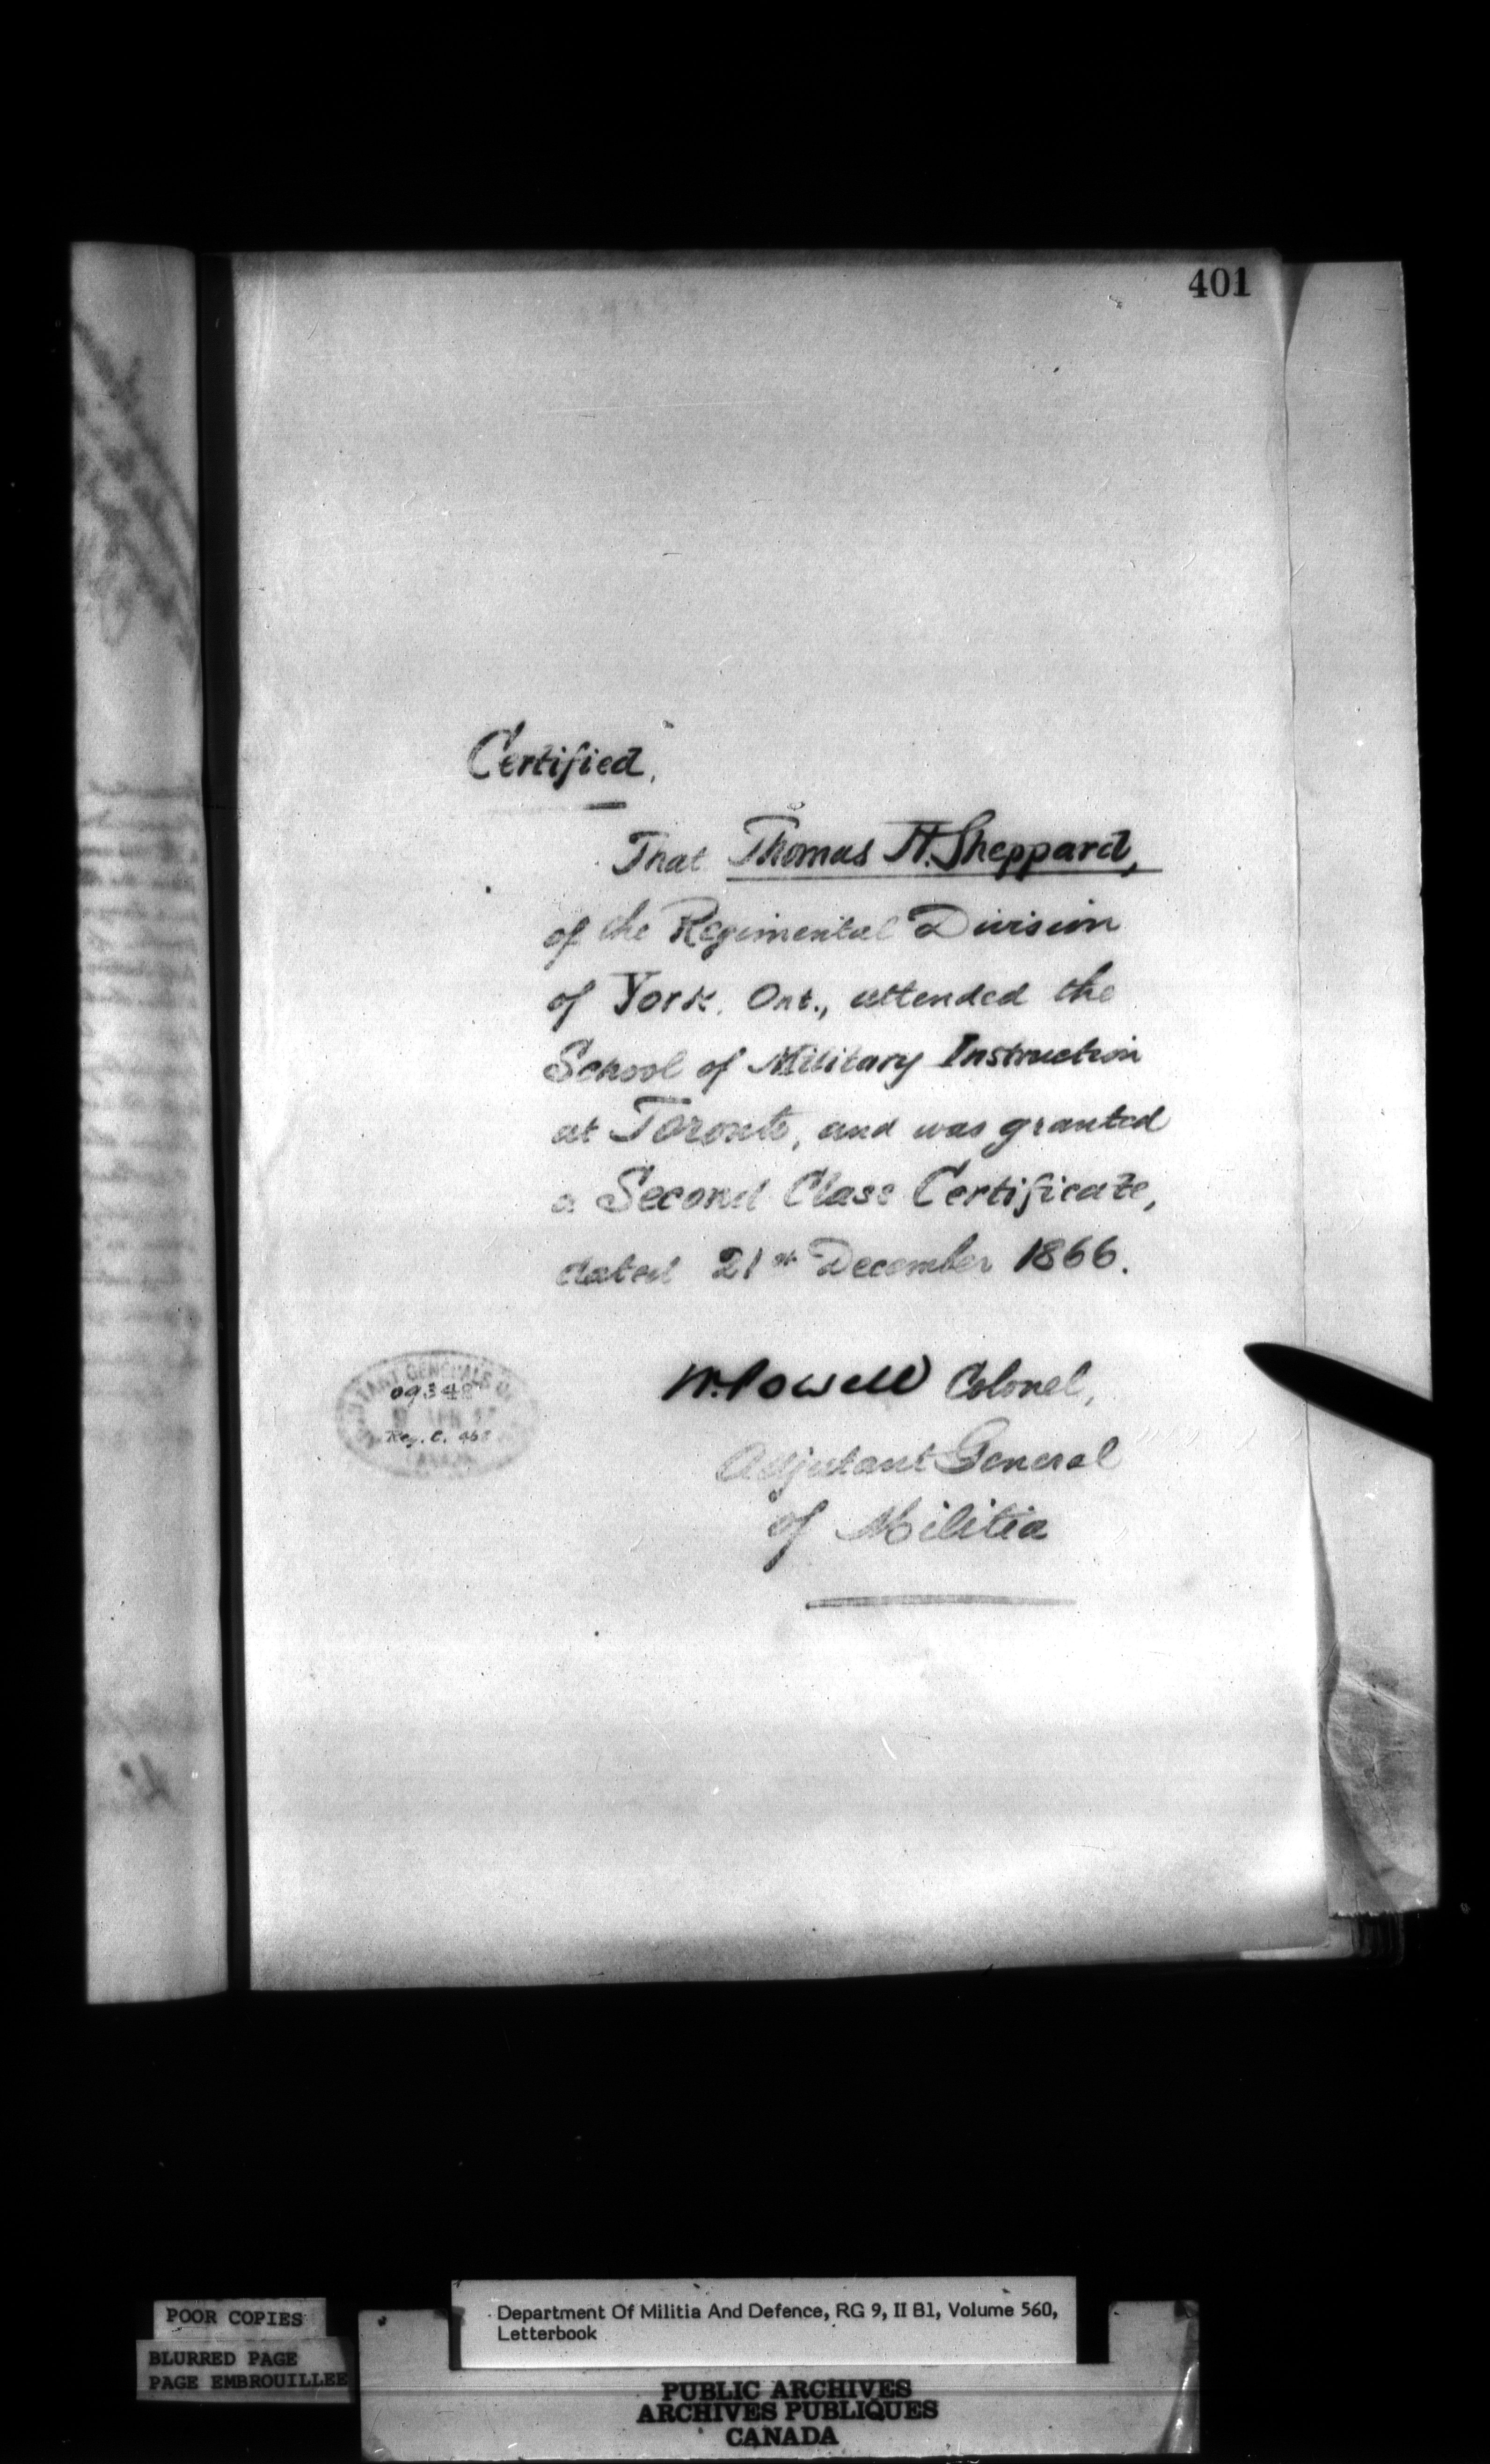 401
Certified.
That Thomas H. Sheppard,
of the Regimental Division
of York, Ont., attended the
School of Military Instruction
at Toronto, and was granted
a Second Class Certificate,
dated 21st December 1866.
W. Powell Colonel,
Adjutant General
of Militia
ADJUTANT GENERALS
09348
Reg. C. 468
CANADA
POOR COPIES
BLURRED PAGE
PAGE EMBROUILLEE
Department Of Militia And Defence, RG 9, II B1, Volume 560,
Letterbook
PUBLIC ARCHIVES
ARCHIVES PUBLIQUES
CANADA